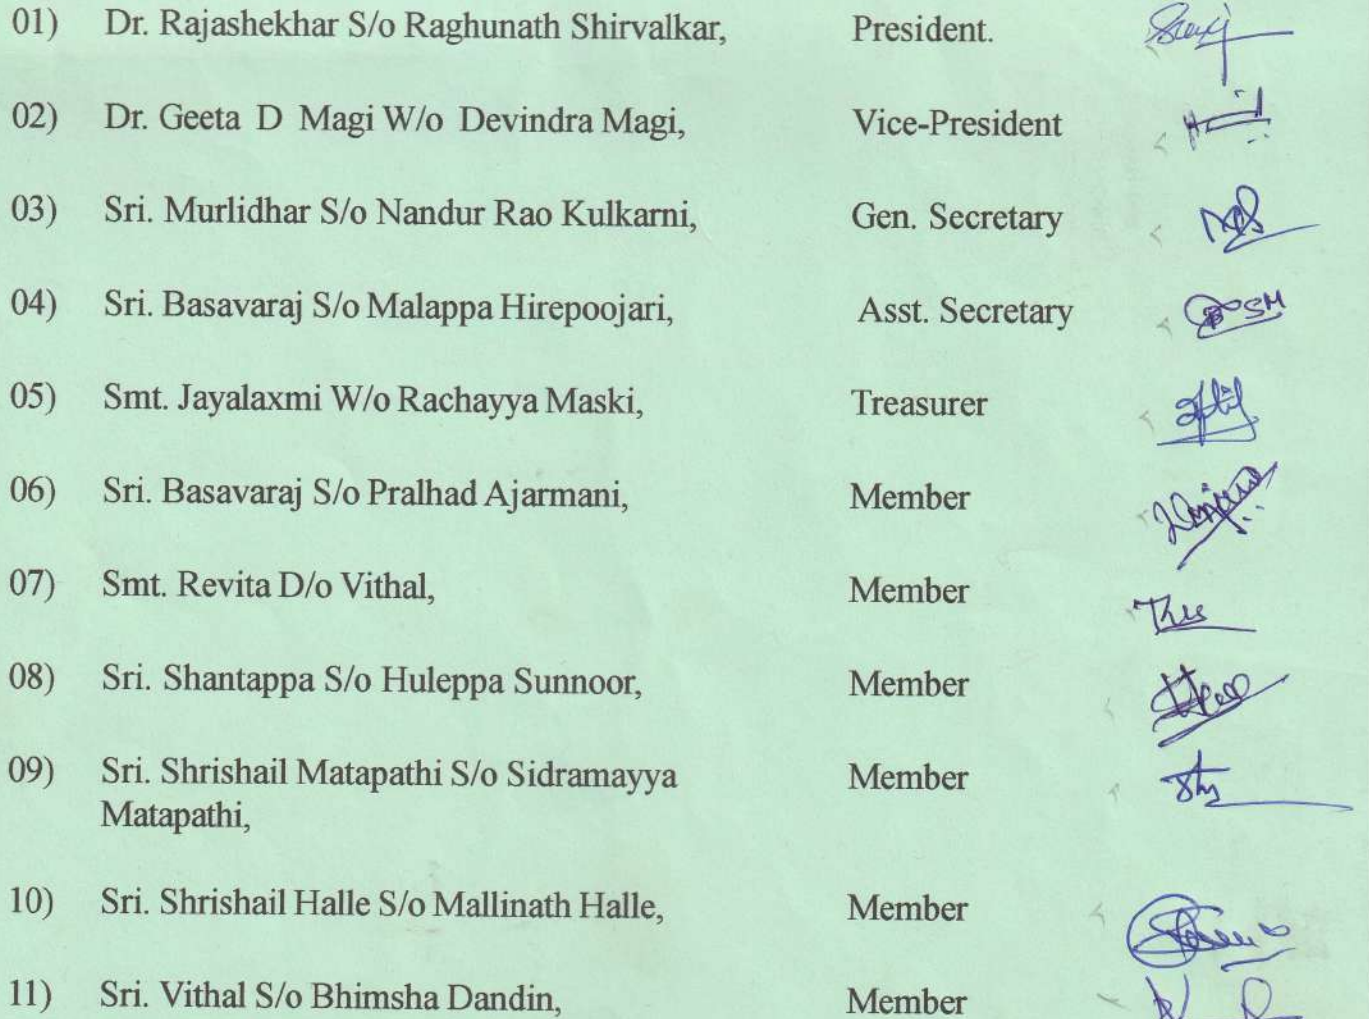 01) Dr. Rajashekhar S/o Raghunath Shirvalkar, President.
02) Dr. Geeta D Magi W/o Devindra Magi, Vice-President
03) Sri. Murlidhar S/o Nandur Rao Kulkarni, Gen. Secretary
04) Sri. Basavaraj S/o Malappa Hirepoojari, Asst. Secretary
05) Smt. Jayalaxmi W/o Rachayya Maski, Treasurer
06) Sri. Basavaraj S/o Pralhad Ajarmani, Member
07) Smt. Revita D/o Vithal, Member
08) Sri. Shantappa S/o Huleppa Sunnoor, Member
09) Sri. Shrishail Matapathi S/o Sidramayya Member
Matapathi,
10) Sri. Shrishail Halle S/o Mallinath Halle, Member
11) Sri. Vithal S/o Bhimsha Dandin, Member